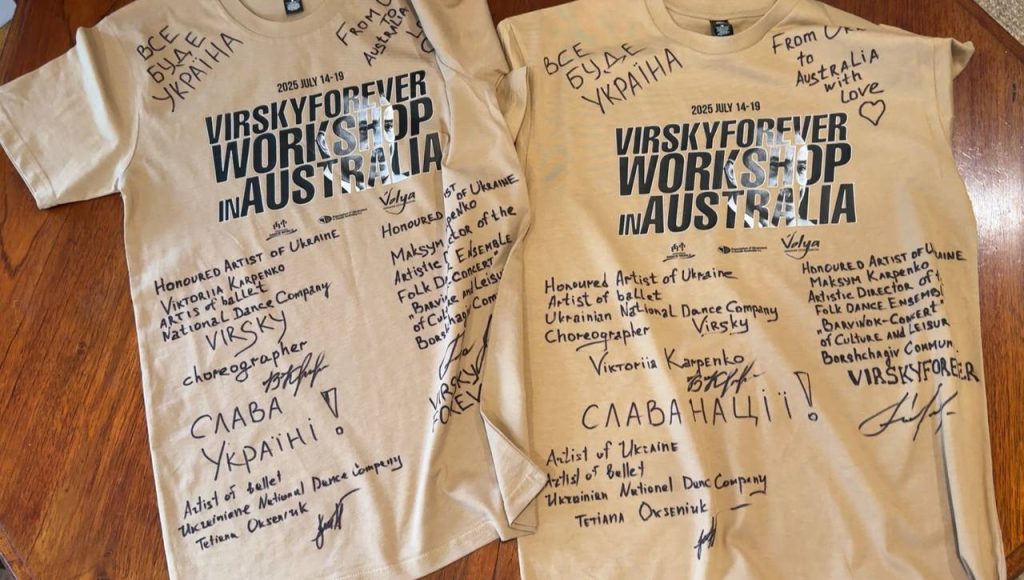 ВСЕ
БУДЕ
УКРАЇНА
FROM U
TO
AUSTRALIA
2025 JULY 14-19
VIRSKYFOREVER
WORKSHOP
IN AUSTRALIA
Volya
HONOURED ARTIST OF UKRAINE
VIKTORIIA KARPENKO
ARTIS of ballet
National Dance Company
VIRSKY
choreographer
СЛАВА
УКРАЇНІ!
Artist of ballet
Ukrainiane National Dance Company
Tetiana Okseniuk
HONOURED ARTIST OF UKRAINE
MAKSYM
Artistic
Folk DANCE ENSEMBLE
of Cul
VIRSKY
FOREV
ВСЕ
БУДЕ
УКРАЇНА
FROM
to
AUSTRALIA
with
LOVE
2025 JULY 14-19
VIRSKYFOREVER
WORKSHOP
IN AUSTRALIA
Volya
Honoured Artist of Ukraine
Artist of ballet
Ukrainian National Dance Company
Choreographer Virsky
Viktoriia Karpenko
СЛАВА НАЦІЇ!
Artist of Ukraine
Artist of ballet
Ukrainian National Danc Company
Tetiana Okseniuk
HONOURED ARTIST OF UKRAINE
MAKSYM KARPENKO
Artistic DIRECTOR of t
Folk DANCE ENSEMBL
„BARVINOK-CONCERT"
of CULTURE and LEISUR
BORSHCHAGIV COMMUN
VIRSKYFOREVER